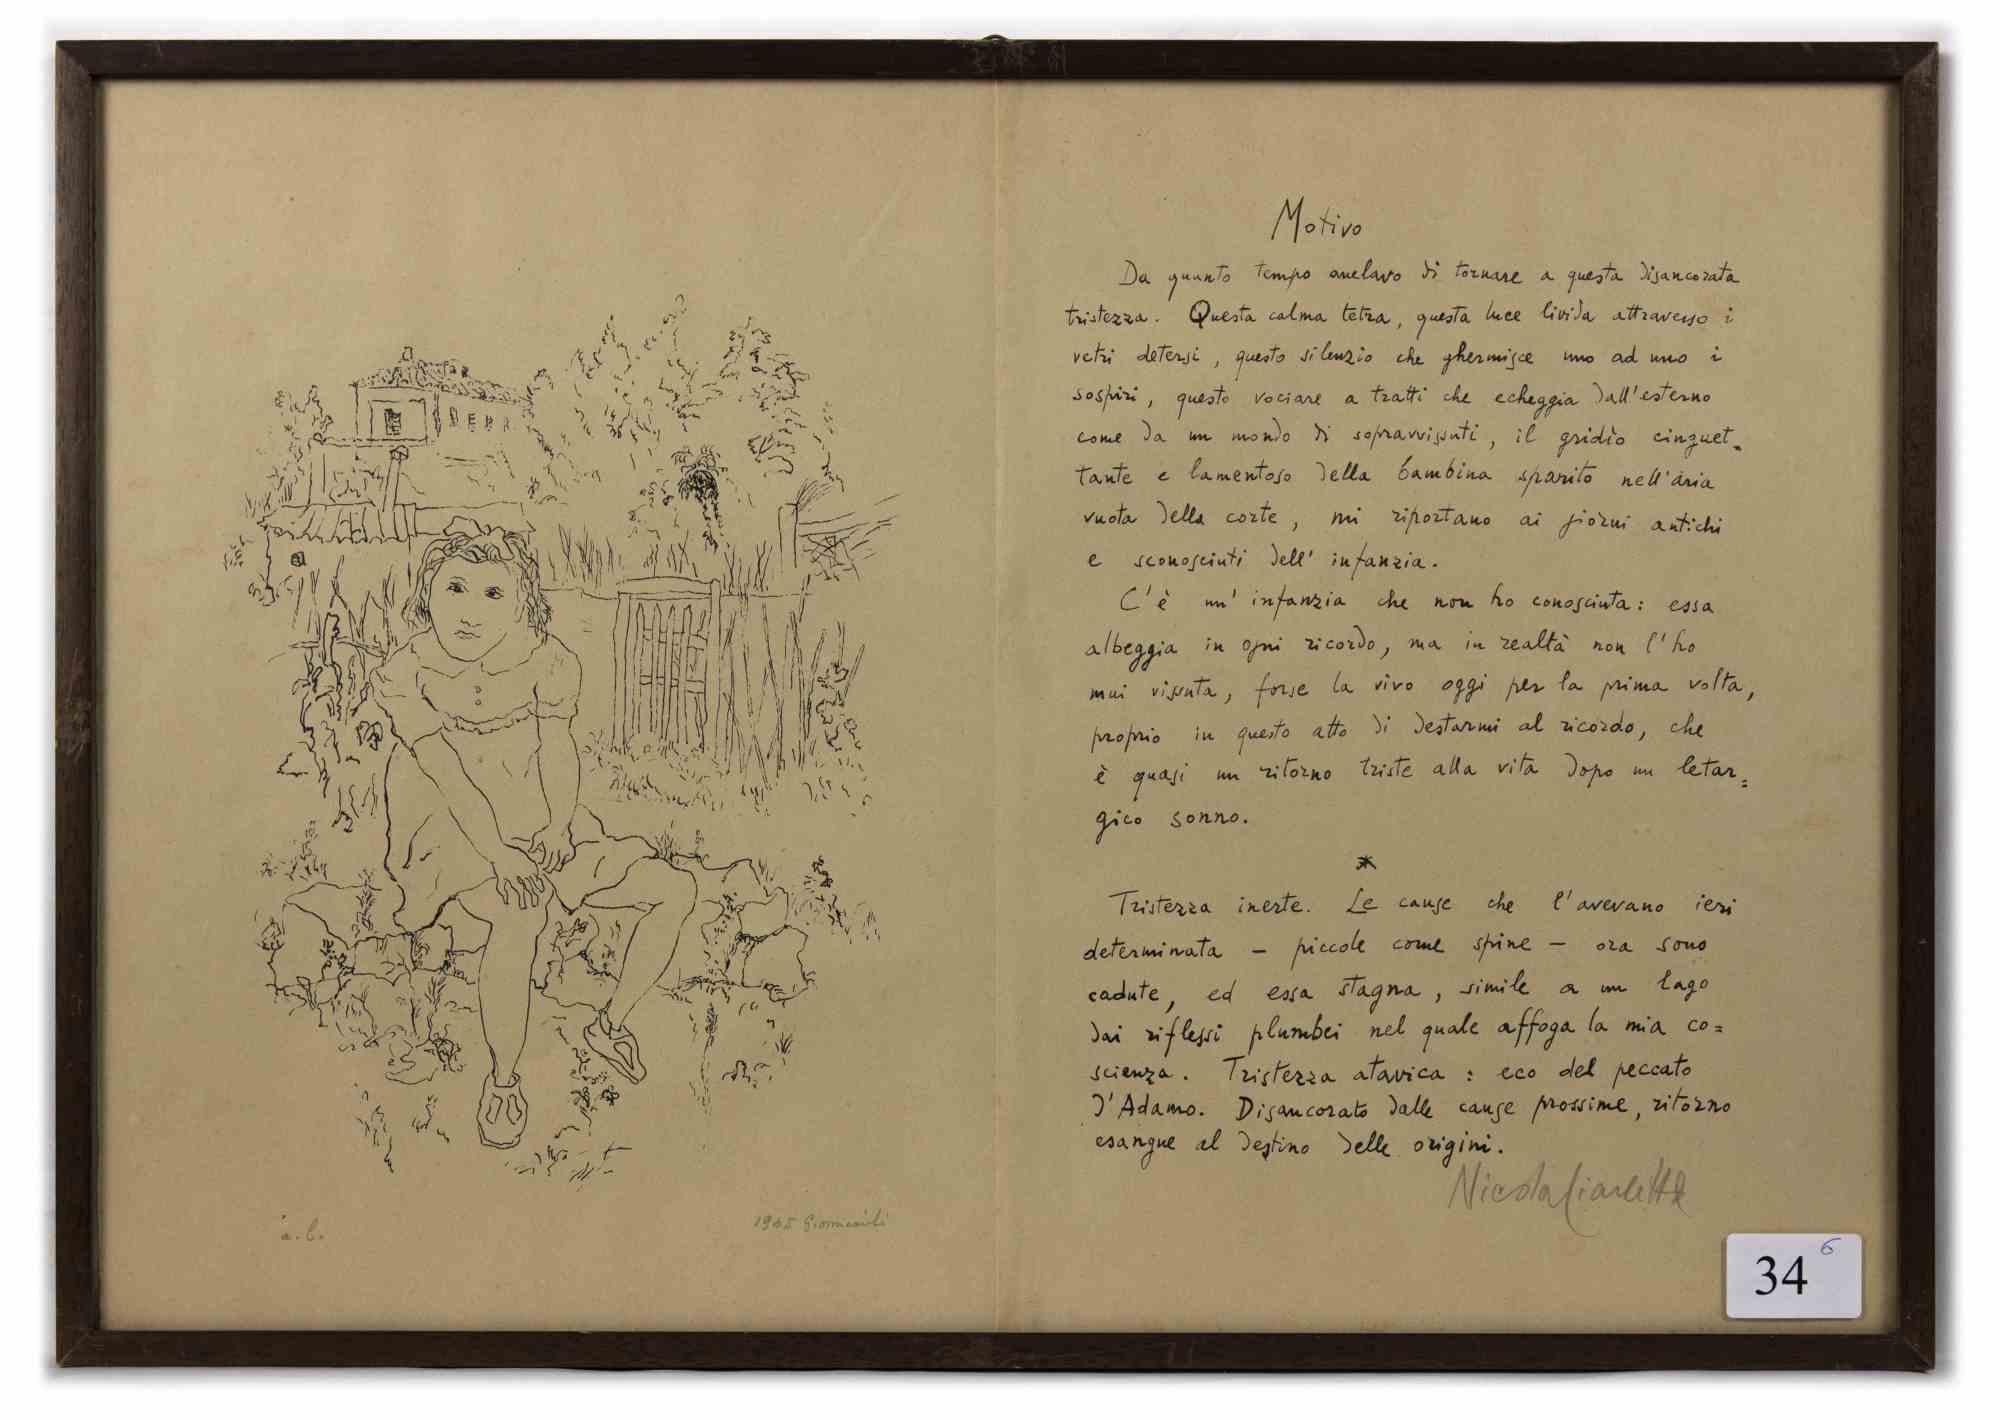 Motivo
Da quanto tempo anelavo di tornare a questa disancorata
tristezza. Questa calma tetra, questa luce livida attraverso i
vetri detersi, questo silenzio che ghermisce uno ad uno i
sospiri, questo vociare a tratti che echeggia dall'esterno
come da un mondo di sopravvissuti, il gridìo cinguet=
tante e lamentoso della bambina sparito nell'aria
vuota della corte, mi riportano ai giorni antichi
e sconosciuti dell'infanzia.
C'è un'infanzia che non ho conosciuta: essa
albeggia in ogni ricordo, ma in realtà non l'ho
mai vissuta, forse la vivo oggi per la prima volta,
proprio in questo atto di destarmi al ricordo, che
è quasi un ritorno triste alla vita dopo un letar=
gico sonno.
*
Tristezza inerte. Le cause che l'avevano ieri
determinata - piccole come spine - ora sono
cadute, ed essa stagna, simile a un lago
dai riflessi plumbei nel quale affoga la mia co=
scienza. Tristezza atavica: eco del peccato
d'Adamo. Disancorato dalle cause prossime, ritorno
esangue al destino delle origini.
Nicola Ciarletta
1945
34 6